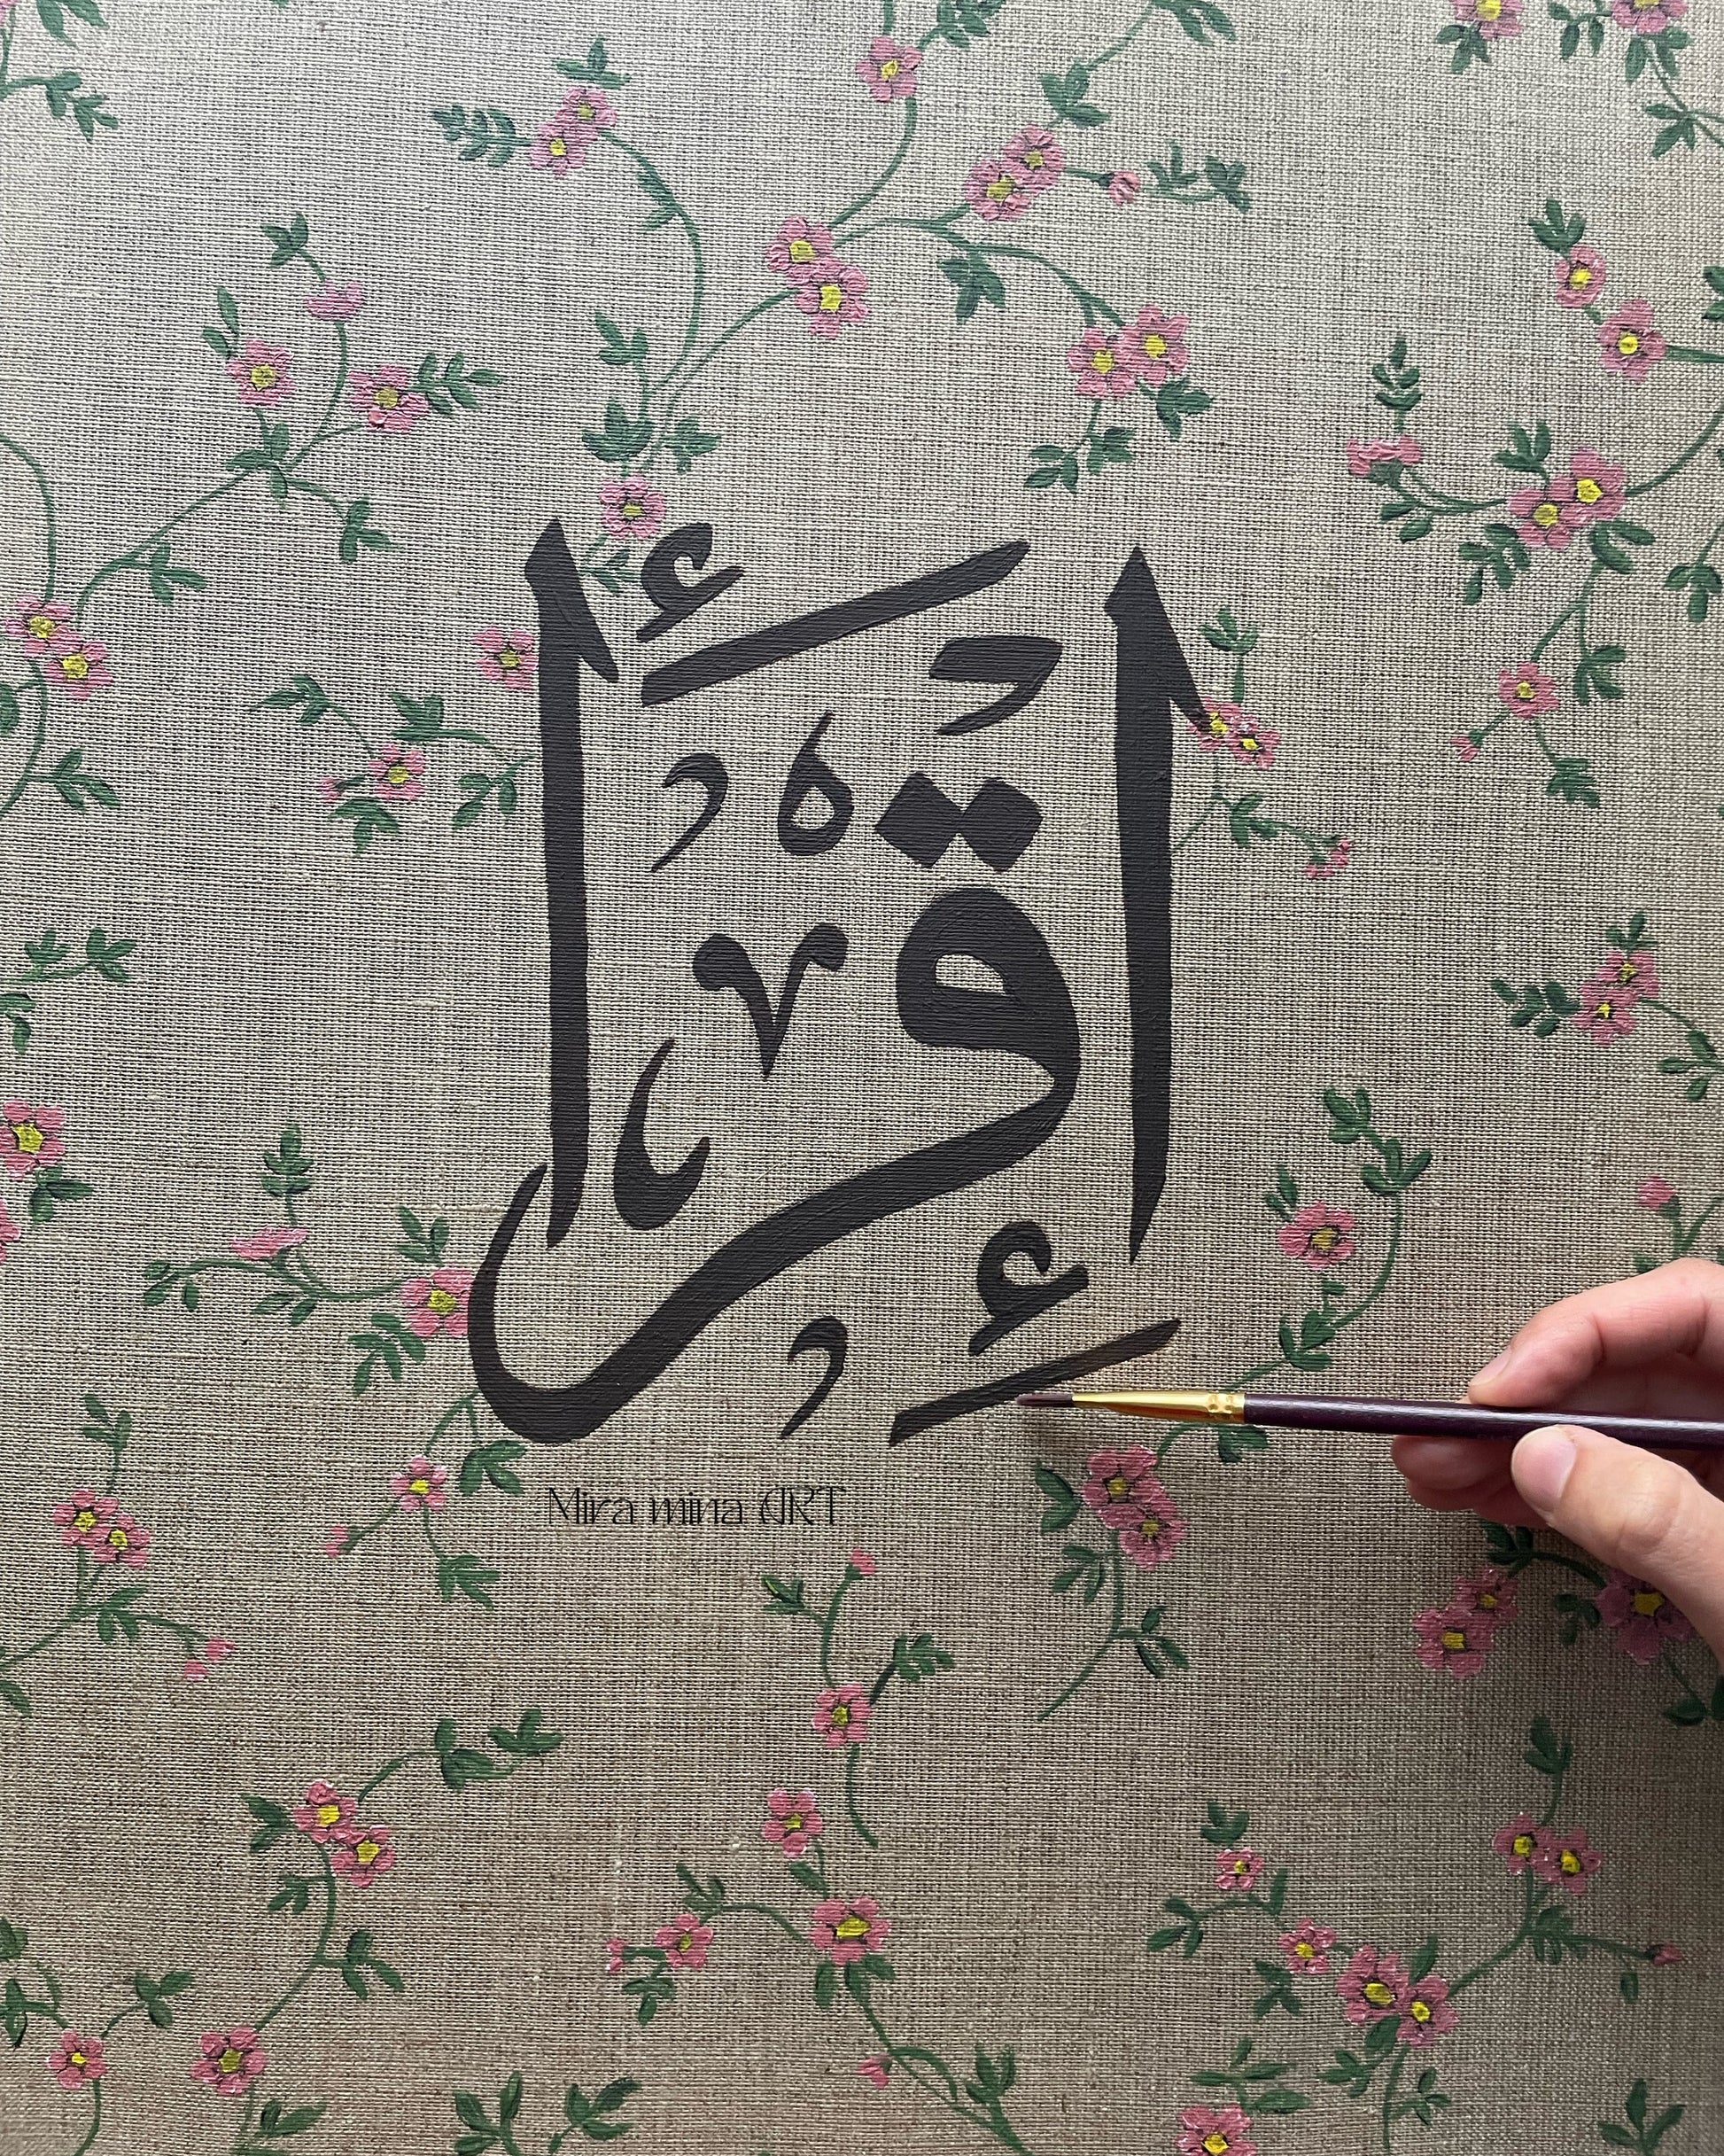 اقرأ
Mira mina ART